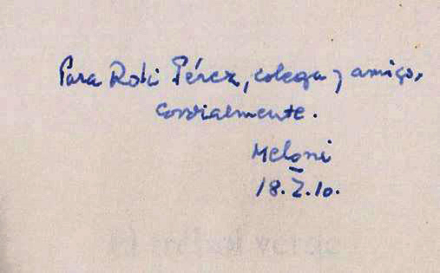 Para Robi Pérez, colega y amigo,
cordialmente.
Meloni
18.X.10.